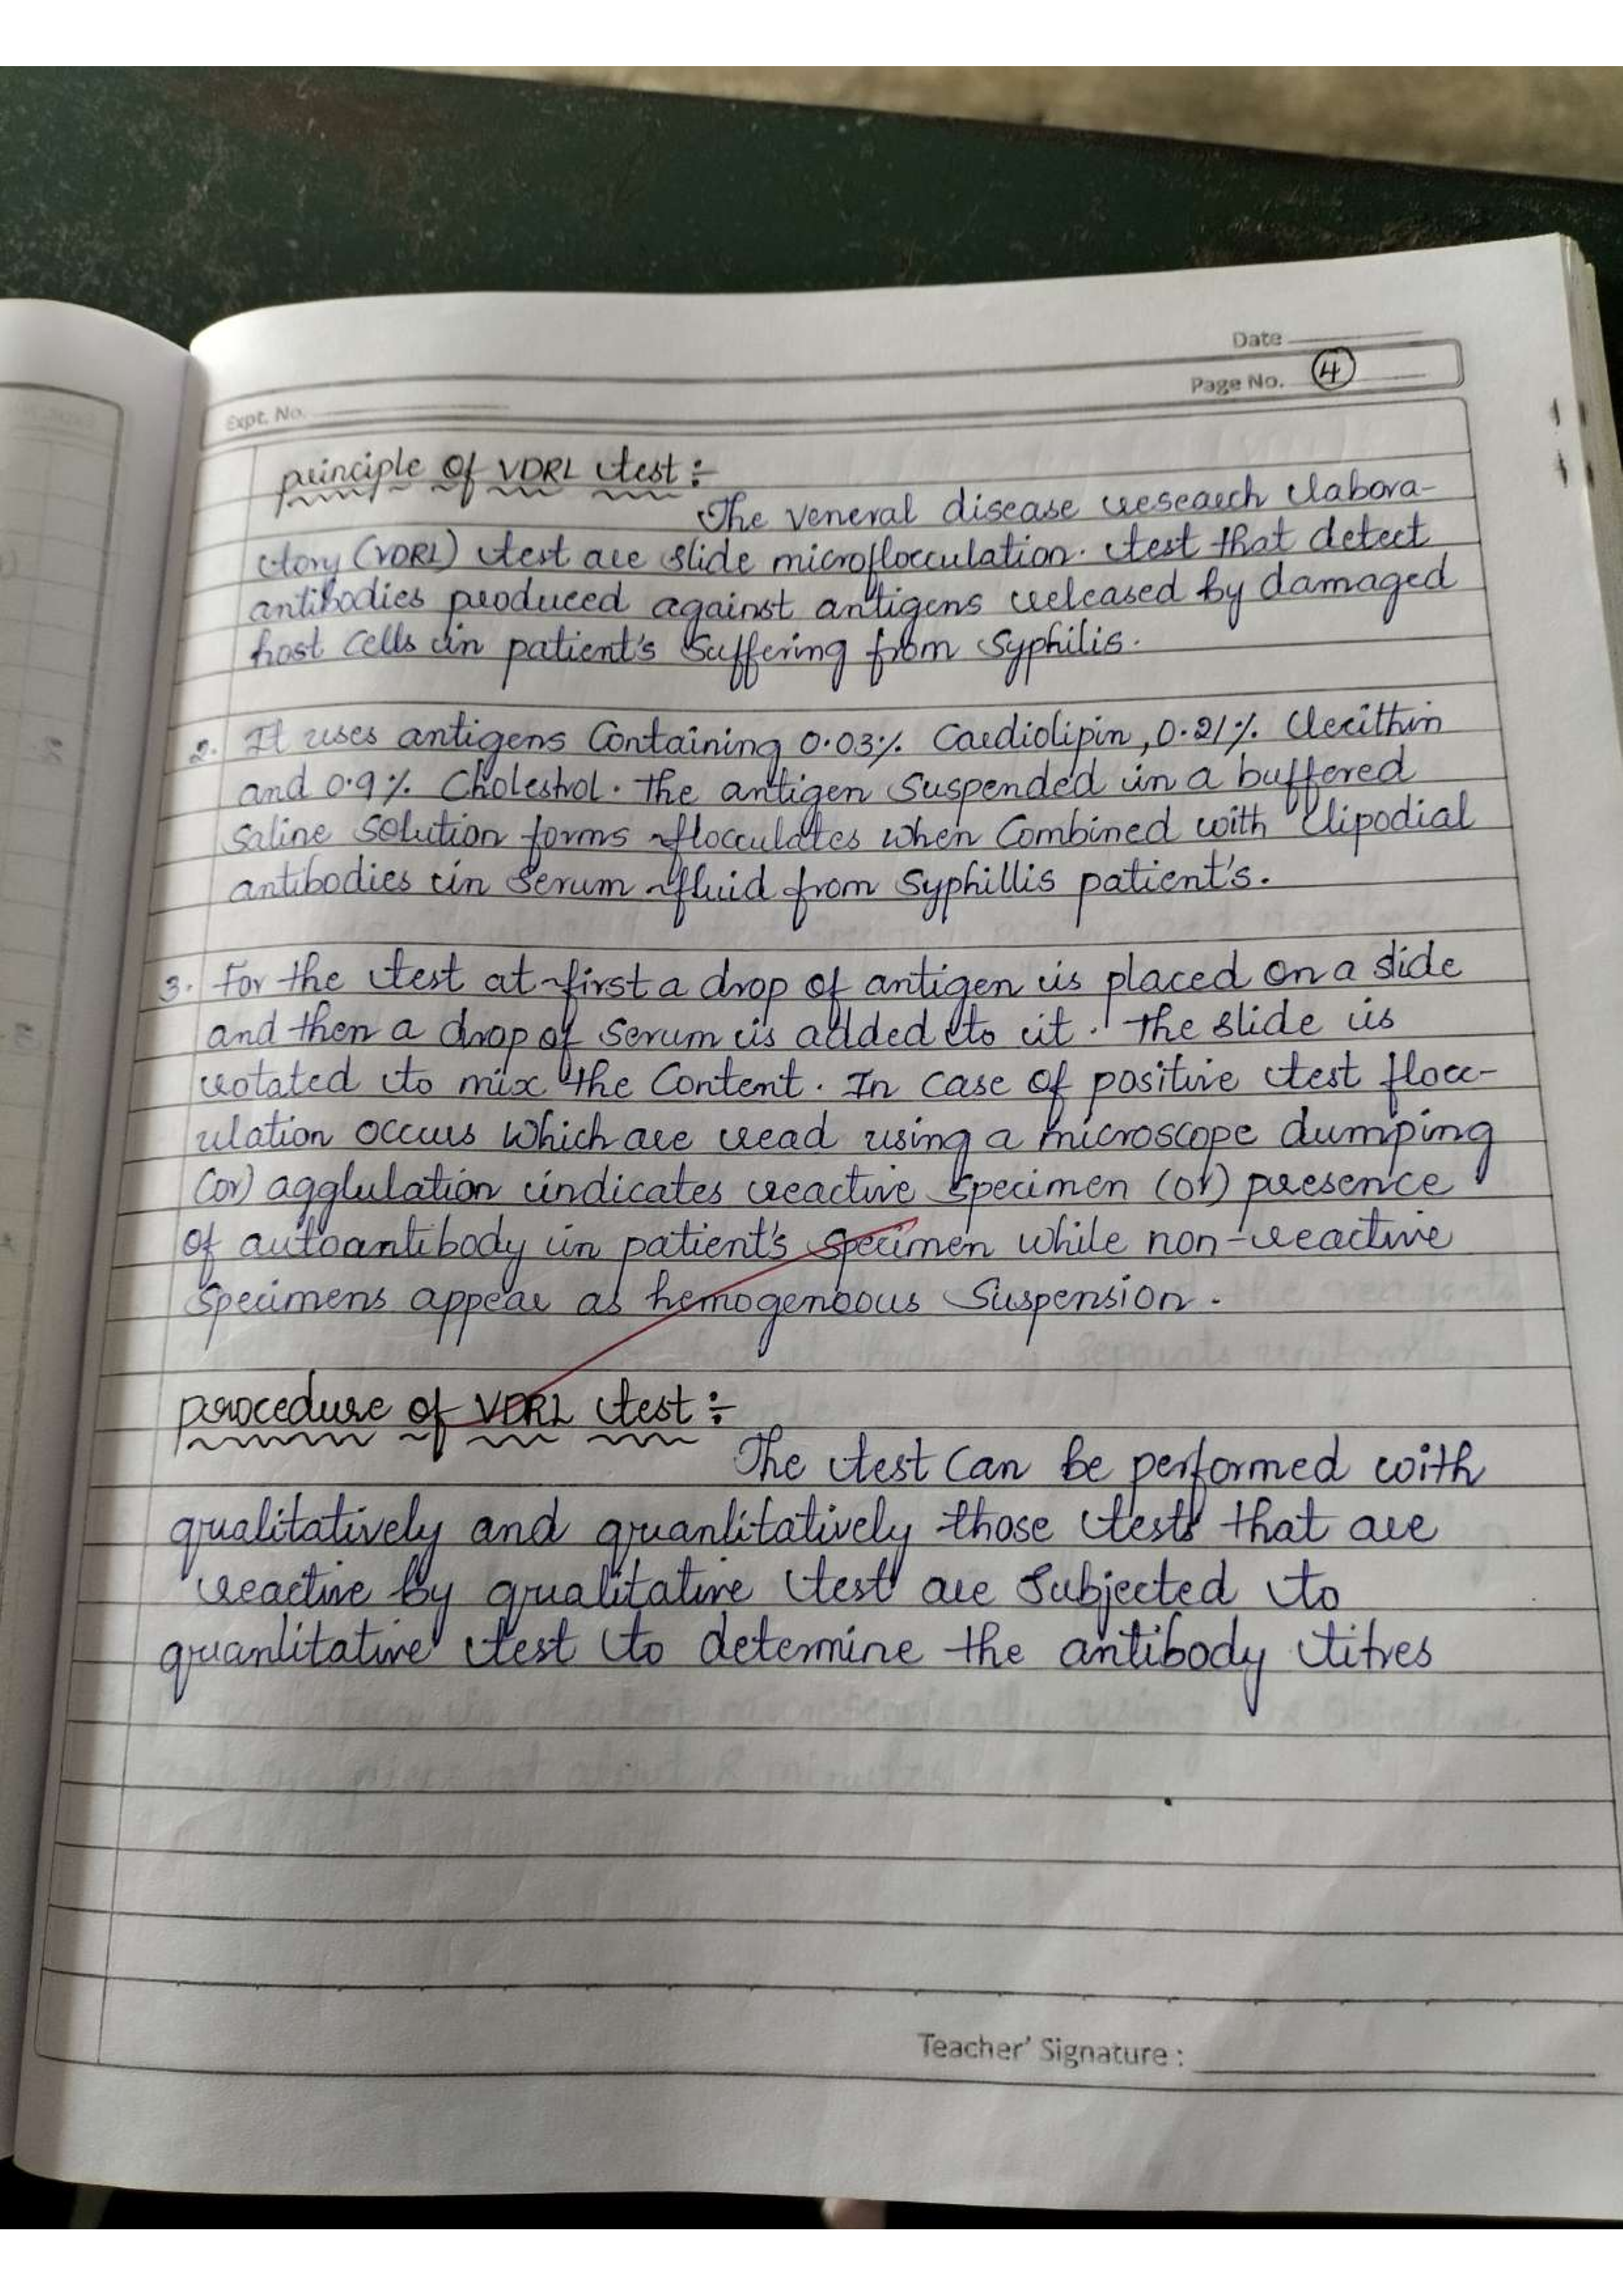 Date
Page No. 4
Expt. No.
principle of VDRL test :-
The veneral disease research labora-
tory (VDRL) test are slide microflocculation. test that detect
antibodies produced against antigens released by damaged
host cells in patient's suffering from syphilis.
2. It uses antigens containing 0.03%. Cardiolipin, 0.21%. lecithin
and 0.9%. Choleshol. The antigen suspended in a buffered
saline solution forms flocculates when combined with lipodial
antibodies in serum fluid from syphillis patient's.
3. For the test at first a drop of antigen is placed on a slide
and then a drop of serum is added to it. The slide is
rotated to mix the content. In case of positive test flocc-
ulation occurs which are read using a microscope dumping
(or) agglulation indicates reactive specimen (or) presence
of autoantibody in patient's specimen while non-reactive
specimens appear as hemogenoous suspension.
procedure of VDRL test :-
The test can be performed with
qualitatively and quanlitatively those tests that are
reactive by qualitative test are subjected to
quanlitative test to determine the antibody titres
Teacher' Signature :